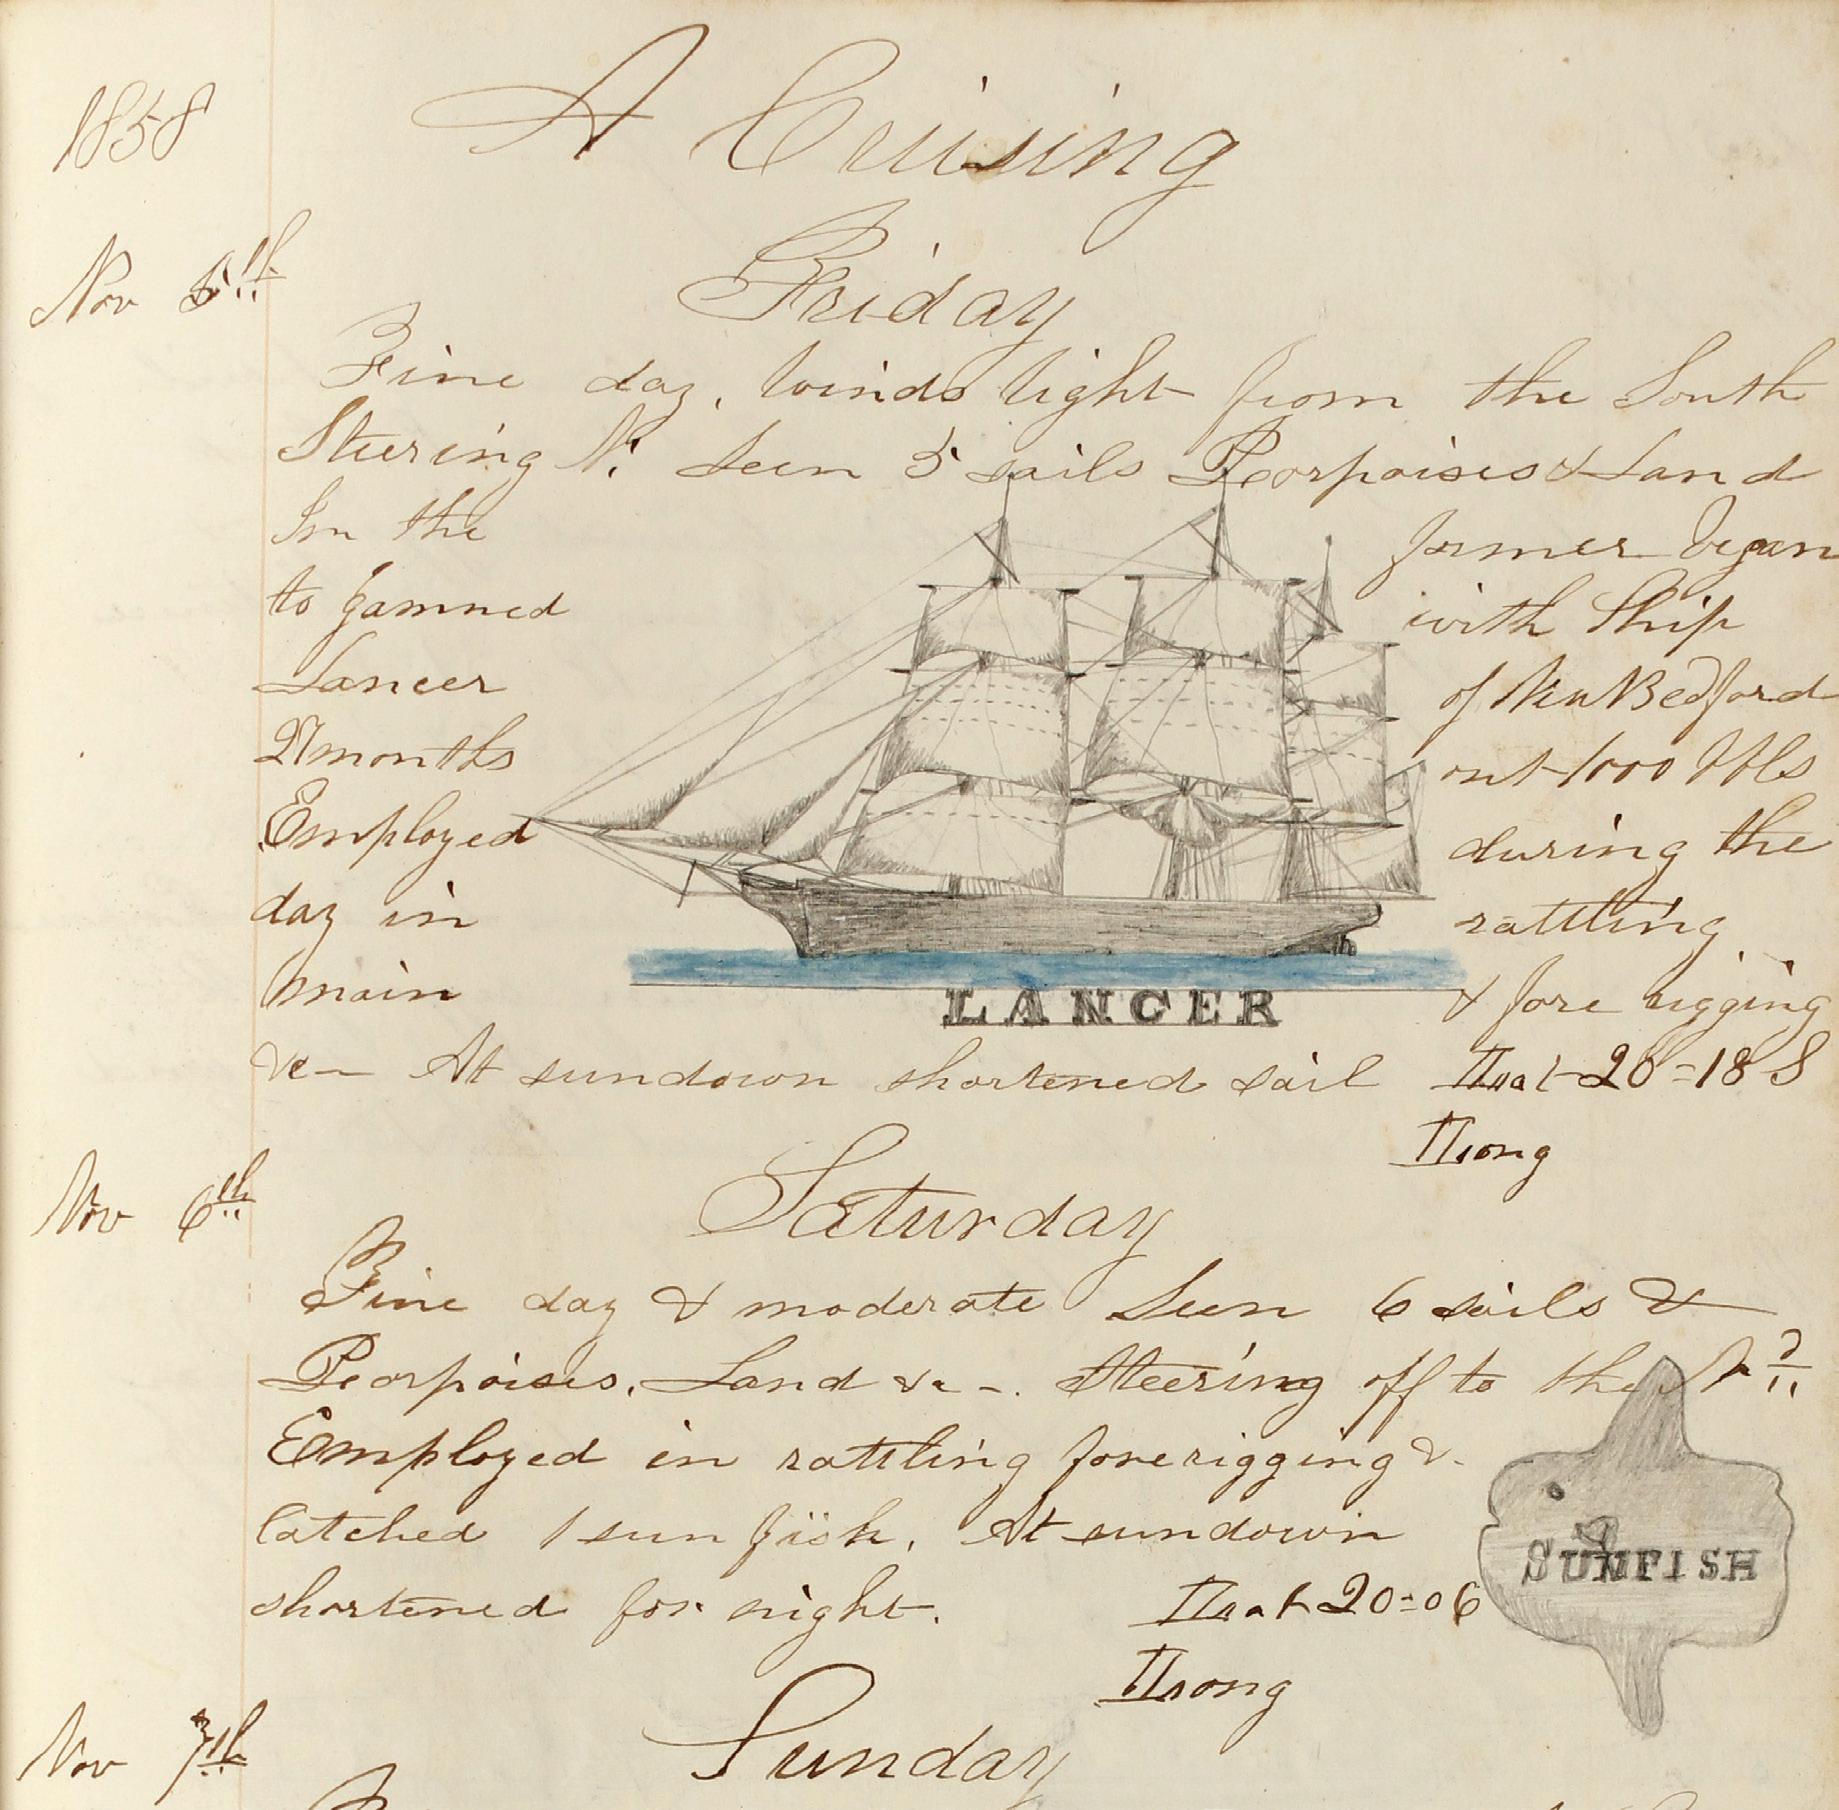 1858
A Cruising
Nov 5th
Friday
Fine day, winds light from the South
Steering N. Seen 5 sails Porpoises & Land
In the former began
to gammed with Ship
Lancer of New Bedford
27 months out 1000 bbls
Employed during the
day in rattling
main & fore rigging
LANCER
&c- At sundown shortened sail Lat 20=18 S
Long
Nov 6th
Saturday
Fine day & moderate Seen 6 sails &
Porpoises, Land &c -. Steering off to the Nd
Employed in rattling fore rigging &.
Catched 1 sun fish. At sundown
SUNFISH
shortened for night. Lat 20=06
Long
Nov 7th
Sunday